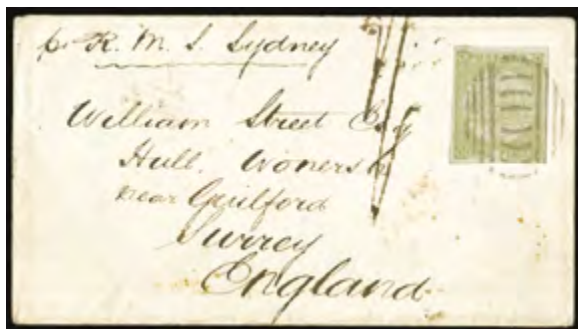 pr R. M. S. Sydney
William Street Esq
Hull. Wonersh
near Guilford
Surrey
England